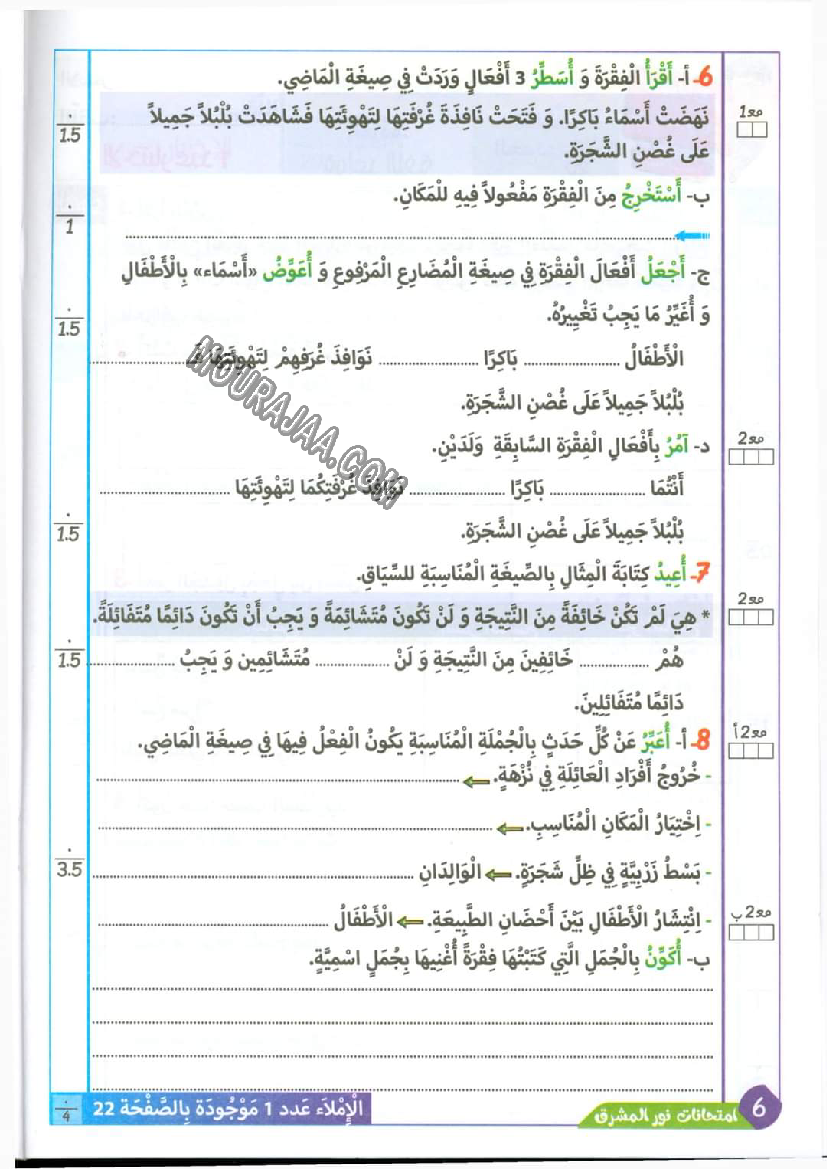 6- أ- أَقْرَأُ الْفِقْرَةَ وَ أُسَطِّرُ 3 أَفْعَالٍ وَرَدَتْ فِي صِيغَةِ الْمَاضِي.
مع1
نَهَضَتْ أَسْمَاءُ بَاكِرًا. وَ فَتَحَتْ نَافِذَةَ غُرْفَتِهَا لِتَهْوِئَتِهَا فَشَاهَدَتْ بُلْبُلاً جَمِيلاً
1.5
عَلَى غُصْنِ الشَّجَرَةِ.
ب- أَسْتَخْرِجُ مِنَ الْفِقْرَةِ مَفْعُولاً فِيهِ لِلْمَكَانِ.
1
ج- أَجْعَلُ أَفْعَالَ الْفِقْرَةِ فِي صِيغَةِ الْمُضَارِعِ الْمَرْفُوعِ وَ أُعَوِّضُ «أَسْمَاء» بِالْأَطْفَالِ
وَ أُغَيِّرُ مَا يَجِبُ تَغْيِيرُهُ.
1.5
الْأَطْفَالُ ........ بَاكِرًا ........ نَوَافِذَ غُرَفِهِمْ لِتَهْوِئَتِهَا فَـ........
بُلْبُلاً جَمِيلاً عَلَى غُصْنِ الشَّجَرَةِ.
MOURAJAA.COM
مع2
د- آمُرُ بِأَفْعَالِ الْفِقْرَةِ السَّابِقَةِ وَلَدَيْنِ.
أَنْتُمَا ........ بَاكِرًا ........ نَوَافِذَ غُرْفَتِكُمَا لِتَهْوِئَتِهَا ........
1.5
بُلْبُلاً جَمِيلاً عَلَى غُصْنِ الشَّجَرَةِ.
7- أُعِيدُ كِتَابَةَ الْمِثَالِ بِالصِّيغَةِ الْمُنَاسِبَةِ لِلسِّيَاقِ.
مع2
* هِيَ لَمْ تَكُنْ خَائِفَةً مِنَ النَّتِيجَةِ وَ لَنْ تَكُونَ مُتَشَائِمَةً وَ يَجِبُ أَنْ تَكُونَ دَائِمًا مُتَفَائِلَةً.
1.5
هُمْ ........ خَائِفِينَ مِنَ النَّتِيجَةِ وَ لَنْ ........ مُتَشَائِمِين وَ يَجِبُ ........
دَائِمًا مُتَفَائِلِينَ.
مع2 أ
8- أ- أُعَبِّرُ عَنْ كُلِّ حَدَثٍ بِالْجُمْلَةِ الْمُنَاسِبَةِ يَكُونُ الْفِعْلُ فِيهَا فِي صِيغَةِ الْمَاضِي.
- خُرُوجُ أَفْرَادِ الْعَائِلَةِ فِي نُزْهَةٍ. ........
- اِخْتِيَارُ الْمَكَانِ الْمُنَاسِبِ. ........
3.5
- بَسْطُ زَرْبِيَّةٍ فِي ظِلِّ شَجَرَةٍ. الْوَالِدَانِ ........
مع2 ب
- اِنْتِشَارُ الْأَطْفَالِ بَيْنَ أَحْضَانِ الطَّبِيعَةِ. الْأَطْفَالُ ........
ب- أُكَوِّنُ بِالْجُمَلِ الَّتِي كَتَبْتُهَا فِقْرَةً أُغْنِيهَا بِجُمَلٍ اسْمِيَّةٍ.
6
امتحانات نور المشرق
الْإِمْلَاءَ عَدد 1 مَوْجُودَة بِالصَّفْحَة 22
4